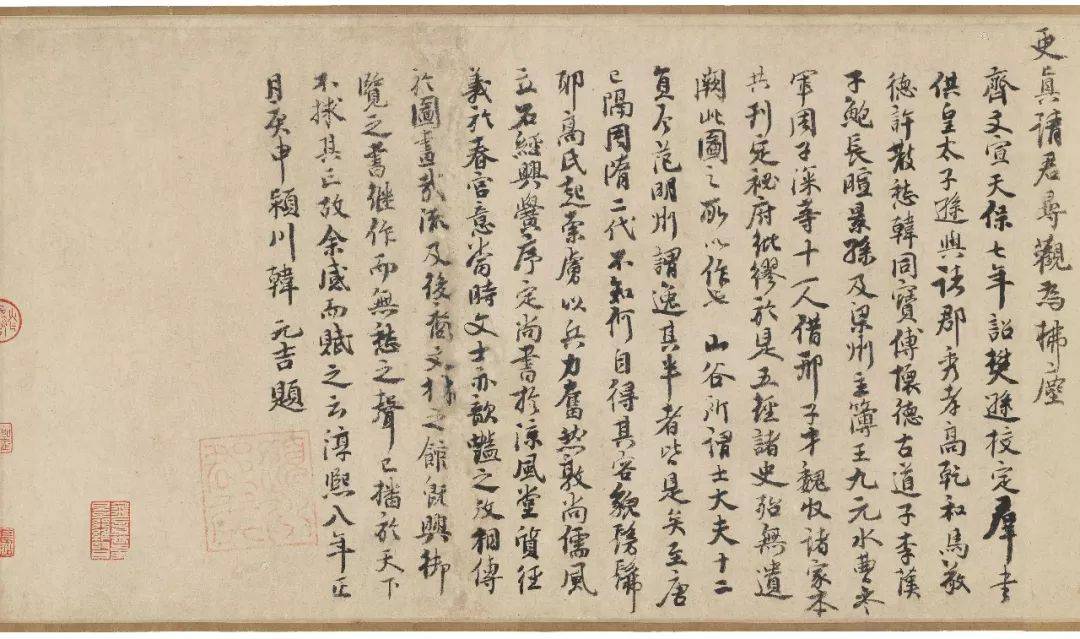 更真請君尋觀為拂塵
齊文宣天保七年詔樊遜校定羣書
供皇太子遜與諸郡秀孝高乾和馬敬
德許散愁韓同寶傅懷德古道子李漢
子鮑長暄景孫及梁州主簿王九元水曹參
軍周子深等十一人借邢子才魏收諸家本
共刊定秘府紕繆於是五經諸史殆無遺
闕此圖之所以作也山谷所謂士大夫十二
員今范明州謂逸其半者皆是矣至唐
已隔周隋二代不知何自得其容貌髣髴
耶高氏起索虜以兵力奮然敦尚儒風
立石經興黌序定尚書於涼風堂質經
義於春宮意當時文士亦歆豔之故相傳
於圖畫哉流及後齊文林之館既興御
覽之書繼作而無愁之聲已播於天下
不捄其亡故余感而賦之云淳熙八年正
月庚申潁川韓元吉題